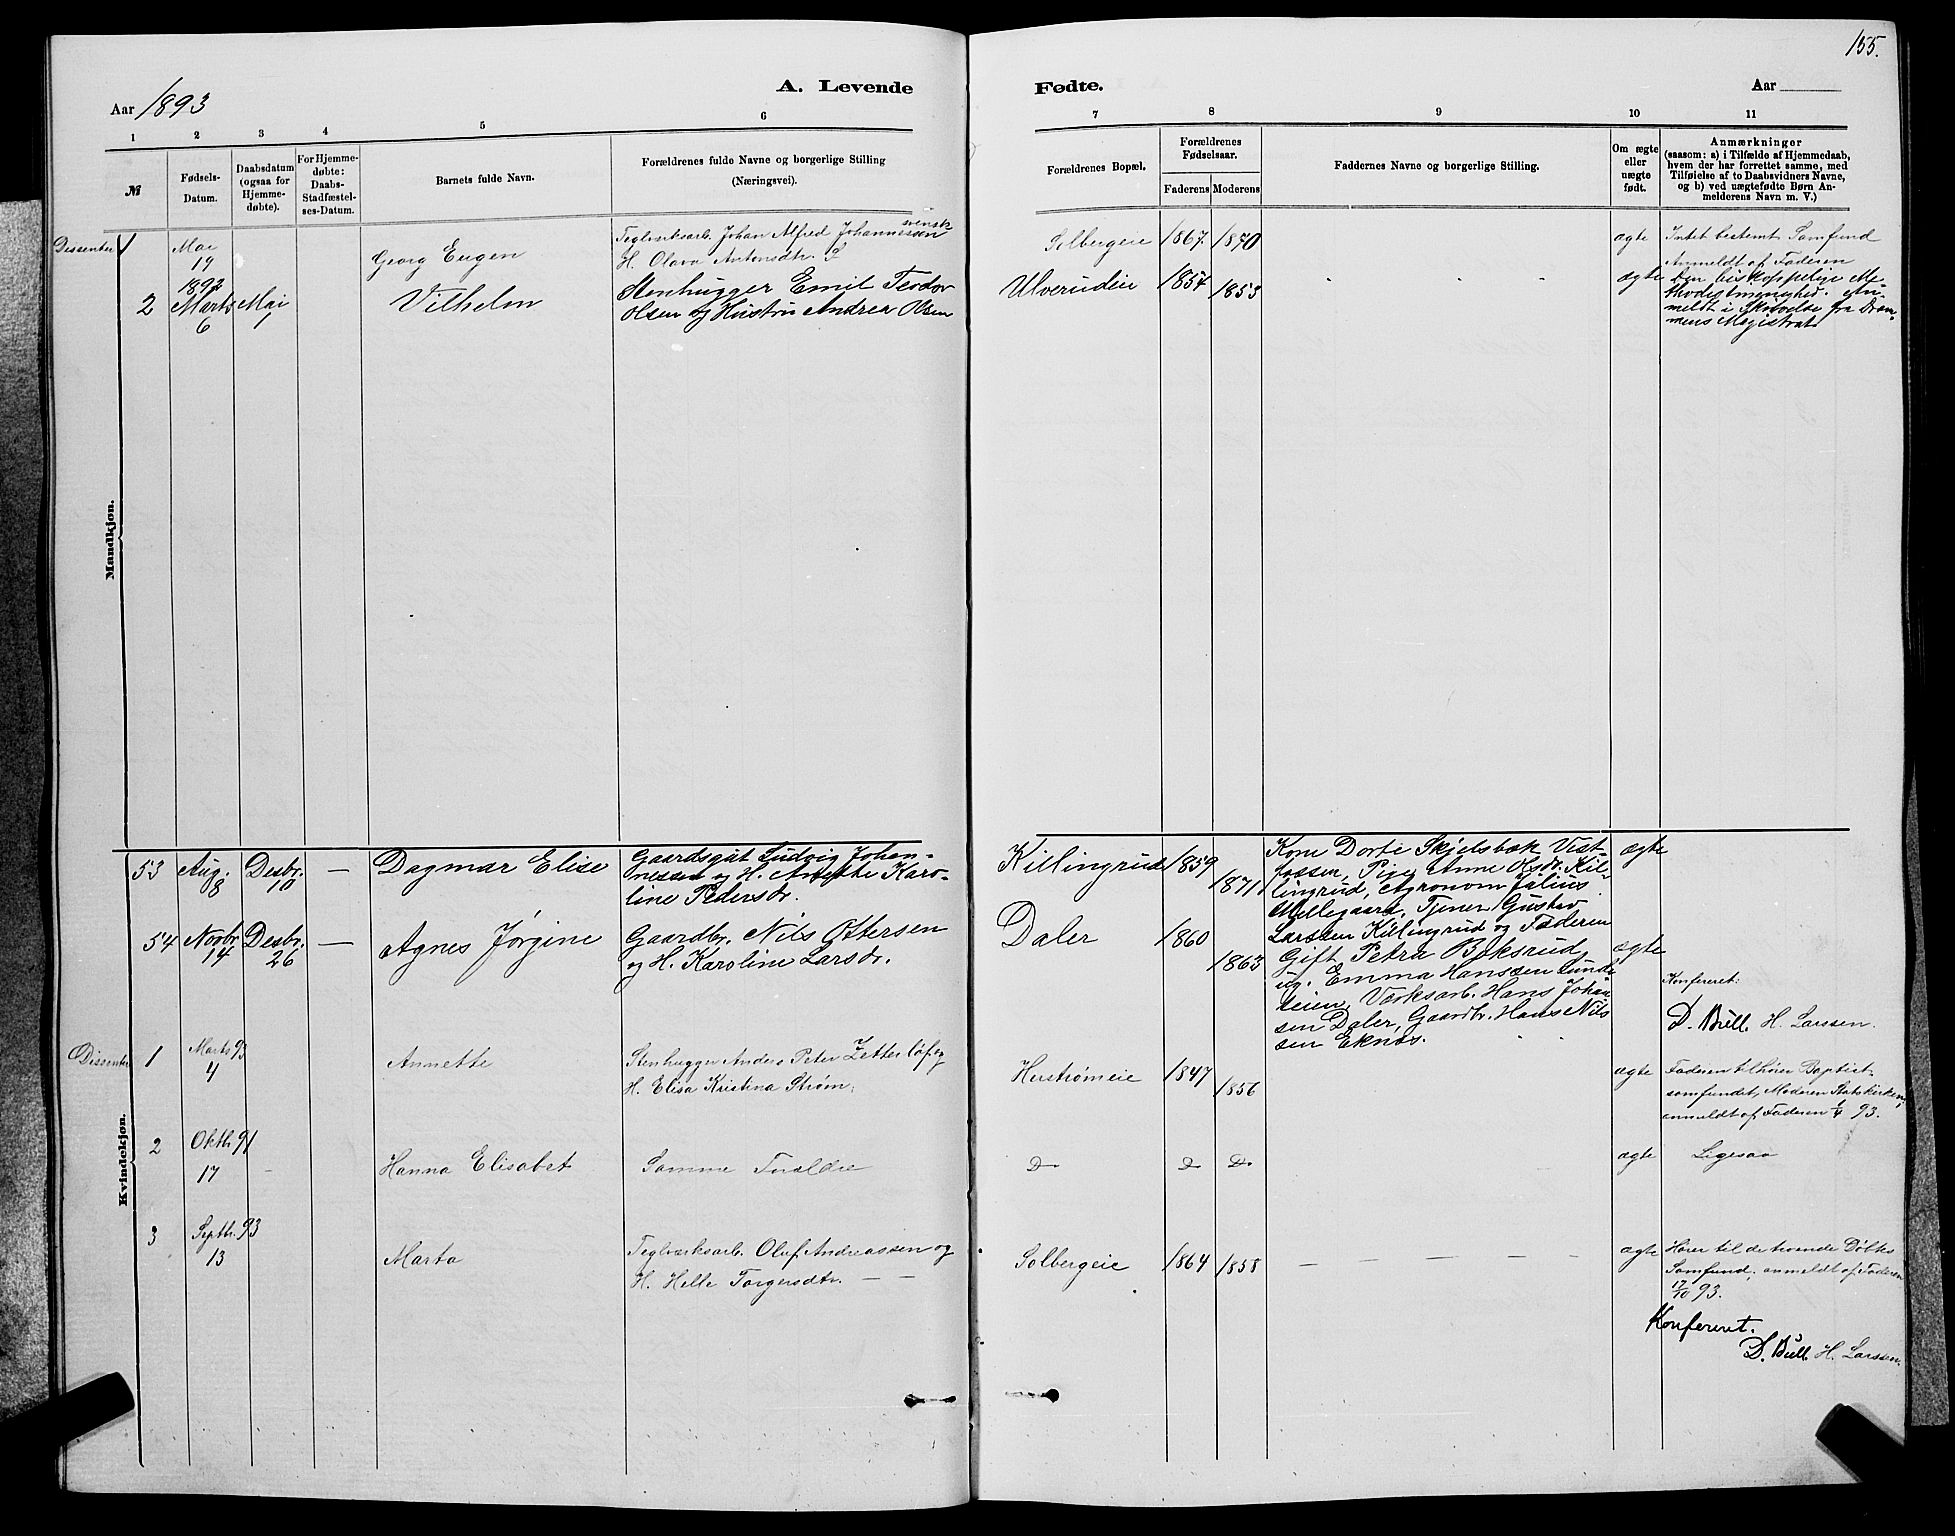 155.
Aar 1893
A. Levende
Fødte.
Aar
1 2 3 4 5 6
7 8 9 10 11
№
Fødsels-
Datum.
Daabsdatum
(ogsaa for
Hjemme-
døbte).
For Hjemme-
døbte:
Daabs-
Stadfæstel-
ses-Datum.
Barnets fulde Navn.
Forældrenes fulde Navne og borgerlige Stilling
(Næringsvei).
Forældrenes Bopæl.
Forældrenes
Fødselsaar.
Faderens Moderens
Faddernes Navne og borgerlige Stilling.
Om ægte
eller
uægte
født.
Anmærkninger
(saasom: a) i Tilfælde af Hjemmedaab,
hvem der har forrettet samme, med
Tilføielse af to Daabsvidners Navne,
og b) ved uægtefødte Børn An-
melderens Navn m. V.)
Mandkjøn.
Dissenter 1
Mai
19
Georg Eugen
svensk
Teglværksarb. Johan Alfred Johannessen
H. Olava Antonsdtr.
Solbergeie 1867. 1870
ægte
Intet bestemt Samfund
Anmeldt af Faderen
2
1892
Marts
6
Mai
Vilhelm
Stenhugger Emil Teodor
Olsen og Hustru Andrea Olsen
Ulverudeie 1857 1853
ægte
Den biskoppelige Me-
thodistmenighed. An-
meldt i Skrivelse fra Dram-
mens Magistrat
Kvindekjøn.
53 Aug. 8 Desbr. 10 — Dagmar Elise
Gaardsgut Ludvig Johan-
nessen og H. Anette Karo-
line Pedersdr.
Killingrud 1859 1871
Kone Dorte Skjelsbæk Vest-
fossen, Pige Anne Olsdr. Kil-
lingrud, Agronom Julius
Millegaard, Tjener Gustav
Larssen Killingrud og Faderen
ægte
54 Novbr. 14 Desbr. 26 — Agnes Jørgine
Gaardbr. Nils Ottersen
og H. Karoline Larsdr.
Daler 1860 1863
Gift Petra Boksrud,
ug. Emma Hanssen Lunde-
seien, Værksarb. Hans Johan-
sen Daler, Gaardbr. Hans Nils
sen Eknes.
ægte
Konfereret:
D. Bull. H. Larssen.
Dissenter 1
Marts 93
4
Annette
Stenhugger Anders Peter Zetterlöf og
H. Elisa Kristina Strøm.
Herstrømeie 1847 1856
ægte
Faderen tilhører Baptist-
samfundet, Moderen Statskirken,
anmeldt af Faderen 1/4 93.
2
Oktbr. 91
17 —
Hanna Elisabet
Samme Forældre
Do Do Do
ægte
Ligesaa
3
Septbr. 93
13
Marta
Teglværksarb. Oluf Andreassen og
H. Helle Torgersdtr. — —
Solbergeie 1864 1858 — — — — —
ægte
Hører til de troende Døbtes
Samfund, anmeldt af Faderen
17/10 93.
Konfereret.
D. Bull. H. Larssen.